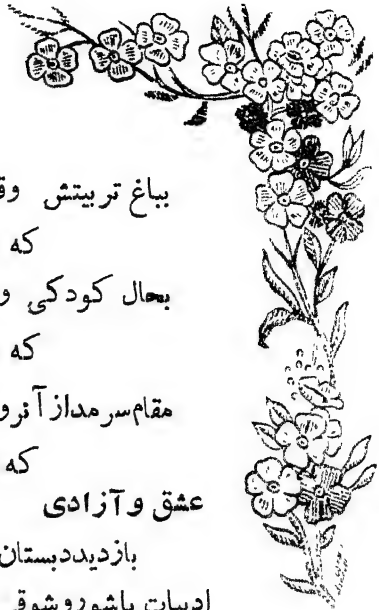 بباغ تربیتش
که
بحال کودکی و
که
مقام سرمد از آنرو
که
عشق و آزادی
بازدید دبستان
ادبیات با شور و شوق